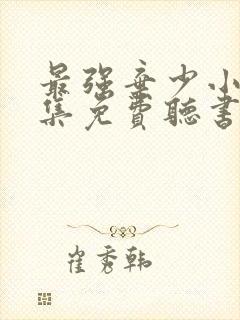 最强弃少小
集免費聽書
崔秀韩